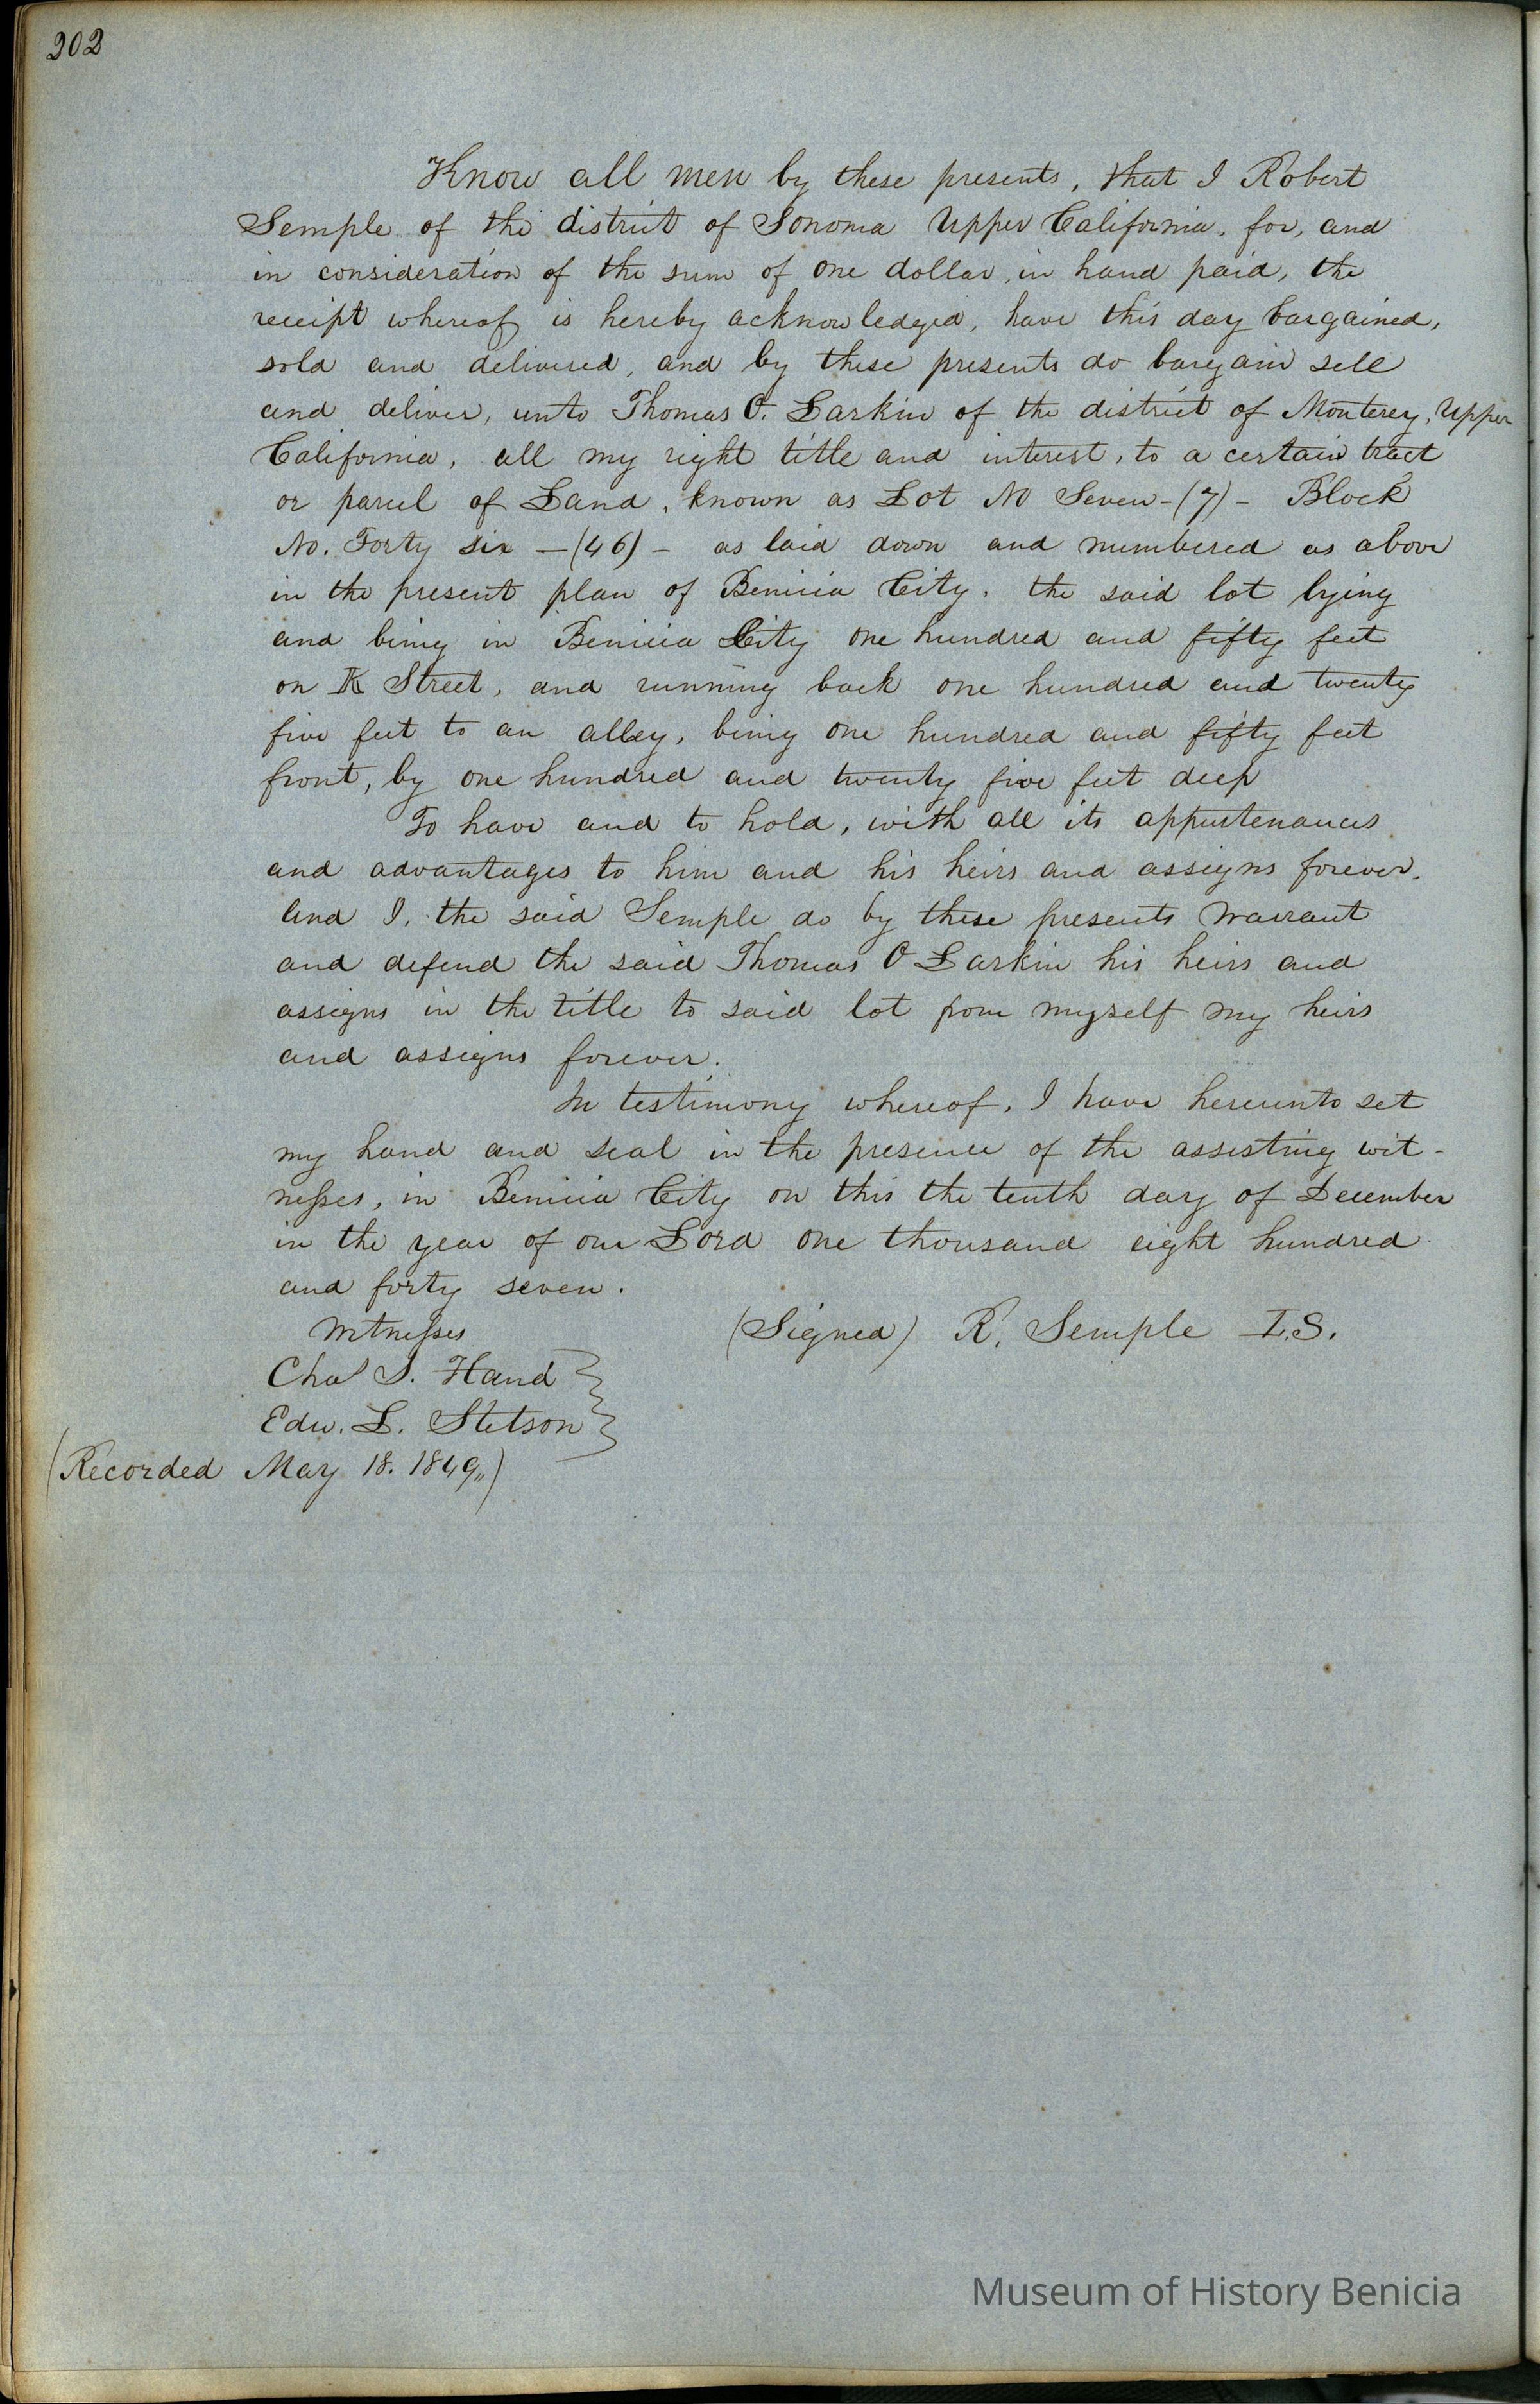 202
Know all men by these presents, that I Robert
Semple of the district of Sonoma Upper California, for, and
in consideration of the sum of one dollar, in hand paid, the
receipt whereof is hereby acknowledged, have this day bargained,
sold and delivered, and by these presents do bargain sell
and deliver, unto Thomas O. Larkin of the district of Monterey, Upper
California, all my right title and interest, to a certain tract
or parcel of Land, known as Lot No Seven-(7)- Block
No. Forty six -(46)- as laid down and numbered as above
in the present plan of Benicia City. the said lot lying
and being in Benicia City one hundred and fifty feet
on K Street, and running back one hundred and twenty
five feet to an alley, being one hundred and fifty feet
front, by one hundred and twenty five feet deep
To have and to hold, with all its appurtenances
and advantages to him and his heirs and assigns forever.
And I, the said Semple do by these presents Warrant
and defend the said Thomas O Larkin his heirs and
assigns in the title to said lot from myself my heirs
and assigns forever.
In testimony whereof, I have hereunto set
my hand and seal in the presence of the assisting wit-
nesses, in Benicia City on this the tenth day of December
in the year of our Lord one thousand eight hundred
and forty seven.
Witnesses (Signed) R. Semple L.S.
Chas S. Hand
Edw. L. Stetson
(Recorded May 18. 1849,,)
Museum of History Benicia